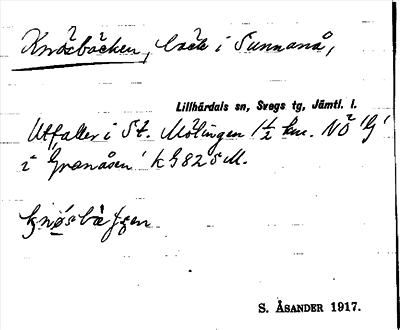 Knösbäcken, bäck i Sunnanå,
Lillhärdals sn, Svegs tg, Jämtl. l.
Utfaller i St. Mölingen 1½ km. NÖ 'G'
i 'Granåsen' k G 82 s M.
S. ÅSANDER 1917.